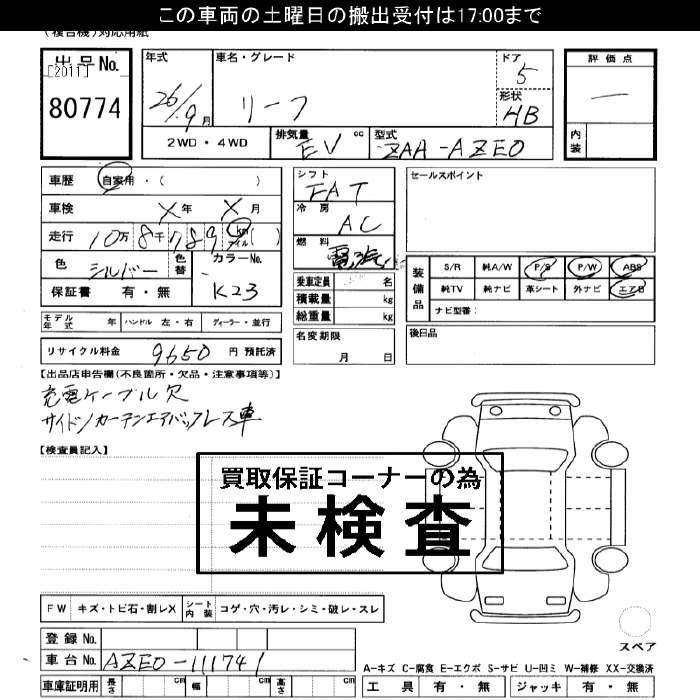 この車両の土曜日の搬出受付は17:00まで
(複合機)対応用紙
出品No.
[2011]
80774
年式
26/9月
車名・グレード
リーフ
ドア
5
形状
HB
評価点
内装
2WD・4WD
排気量 cc
EV
型式
ZAA-AZE0
車歴 自家用・( )
車検 X年 X月
走行 10万 8千 7 8 9 km マイル( )
色 シルバー
色替
カラーNo.
K23
保証書 有・無
シフト
FAT
冷房
AC
燃料
電気
乗車定員 名
積載量 kg
総重量 kg
セールスポイント
装備品
S/R 純A/W P/S P/W ABS
純TV 純ナビ 革シート 外ナビ エアB
ナビ型番:
モデル年式 年 ハンドル 左・右 ディーラー・並行
リサイクル料金 9650 円 預託済
名変期限
月 日
後日品
【出品店申告欄(不良箇所・欠品・注意事項等)】
充電ケーブル欠
サイド/カーテンエアバックレス車
【検査員記入】
買取保証コーナーの為
未検査
FW キズ・トビ石・割レX シート内装 コゲ・穴・汚レ・シミ・破レ・スレ
登録No.
車台No. AZE0-111741
車庫証明用 長さ cm 幅 cm 高さ cm
スペア
A-キズ C-腐食 E-エクボ S-サビ U-凹ミ W-補修 XX-交換済
工具 有・無 ジャッキ 有・無